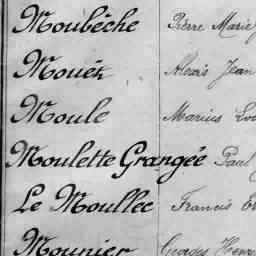 Moubèche Pierre Marie
Mouëx Alexis Jean
Moule Marius
Moulette Grangée Paul
Le Moullec Francis
Mounier Georges Henri